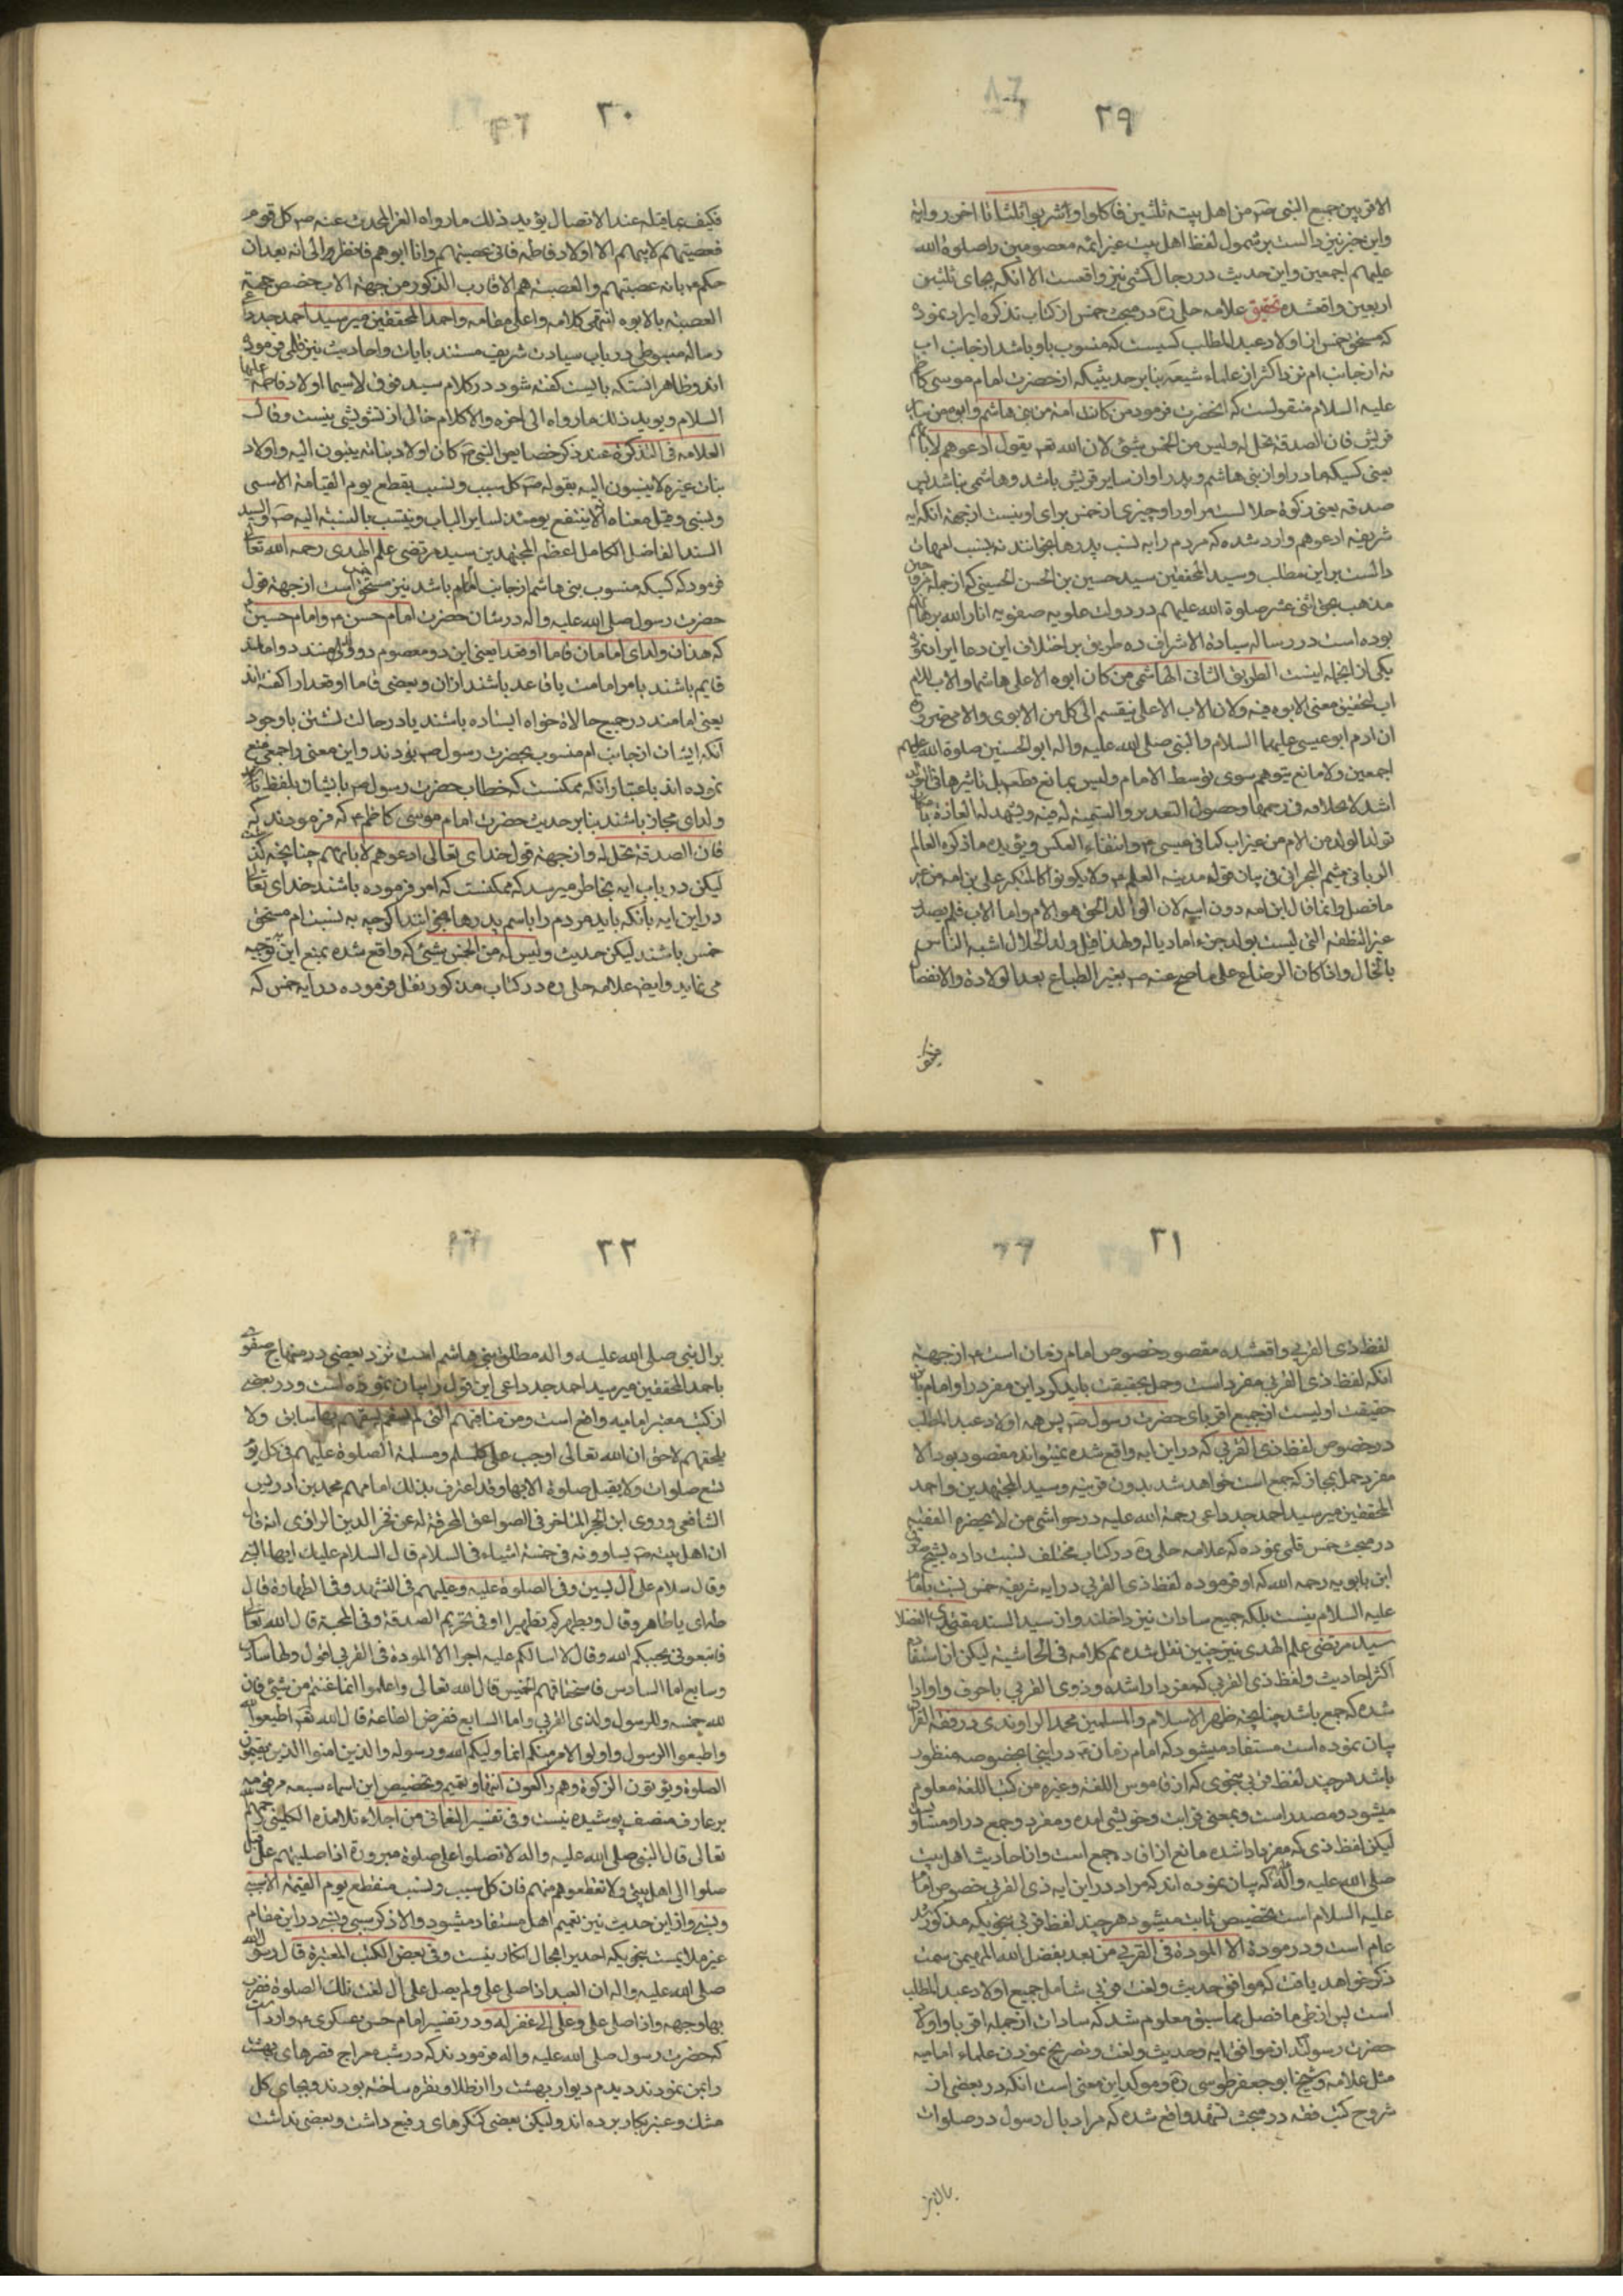 ٢٩
الاقربين جمع النبی ص من اهل بیته ثلثین فاکلوا واشربوا ثلثا الی اخر روایة
واین خبر نیز دالست بر شمول لفظ اهل بیت غیر ائمه معصومین را صلوة الله
علیهم اجمعین واین حدیث در رجال کشی نیز واقعست الا انکه بجای ثلثین
اربعین واقعشده تحقیق علامه حلی ره در مبحث خمس از کتاب تذکره ایراد نموده
که مستحق خمس از اولاد عبد المطلب کسیست که منسوب باو باشد از جانب اب
نه از جانب ام نزد اکثر از علماء شیعه بنا بر حدیثیکه از حضرت امام موسی کاظم
علیه السلام منقولست که انحضرت فرمود من کانت امه من بنی هاشم وابوه من سایر
قریش فان الصدقة تحل له ولیس من الخمس شیئ لان الله تعـ یقول ادعوهم لابائهم
یعنی کسیکه مادر او از بنی هاشم و پدر او از سایر قریش باشد وهاشمی نباشد پس
صدقه یعنی زکوة حلالست مر او را وچیزی از خمس برای او نیست از جهة انکه ایه
شریفه ادعوهم وارد شده که مردم را به نسب پدرها بخوانند نه بنسب امهات
دالست بر این مطلب وسید المحققین سید حسین بن الحسن الحسینی که از جمله
مذهب بحق اثنی عشر صلوة الله علیهم در دولت علویه صفویه انار الله برهانهم
بوده است در رساله سیادة الاشراف ده طریق بر اختلاف این دعا ایراد نموده
یکی از انجمله اینست الطریق الثانی الهاشمی من کان ابوه الاعلی هاشما والاب للام
اب لتحقیق معنی الابوه فیه ولان الاب الاعلی ینقسم الی کل من الابوی والامی ضرورة
ان ادم ابو عیسی علیهما السلام والنبی صلی الله علیه واله ابو الحسنین صلوة الله علیهم
اجمعین ولا مانع یتوهم سوی توسط الام ولیس بمانع قطعا بل تاثیرها فی
اشد لانخلاقه فی رحمها وحصول التقدیر والتنمیة له فیه ویشهد له العادة
تولد الولد من الام من غیر اب کما فی عیسی ع وانتفاء العکس ویؤیده ما ذکره العالم
الربانی میثم البحرانی فی بیان قوله مدینه العلم ع ولا یکونوا کالمتکبر علی بن امه من غیر
ما فضل وانما قال ابن امه دون ابیه لان الوالد الحق هو الام واما الاب فلم یصدر
غیر النطفه التی لیست بولد جزء امادیا له ولهذا قیل ولد الحلال اشبه الناس
بالخال واذا کان الرضاع علی ما صح عنه ص یغیر الطباع بعد الولادة والانفصال
فکیف
٣٠
فکیف بما قبله عند الاتصال یؤید ذلک ما رواه الغز المحدث عنه ص کل قوم
فعصبتهم لابیهم الا اولاد فاطمه فانی عصبتهم وانا ابوهم فانظروا الی انه بعد ان
حکم ع بانه عصبتهم والعصبة هم الاقارب الذکور من جهة الاب خصص جهة
العصبة بالابوه انتهی کلامه واعلی مقامه واحمد المحققین میر سید احمد جد
رساله مبسوطی در باب سیادت شریف مستند بایات واحادیث نیز قلمی فرموده
اند وظاهر انستکه بایست گفته شود در کلام سید فوق لاسیما اولاد فاطمة علیها
السلام ویوید ذلک ما رواه الی اخره والا کلام خالی از تشویشی نیست وقال
العلامه فی التذکرة عند ذکر خصایص النبی ص کان اولاد بناته ینسبون الیه واولاد
بنات غیره لا ینسبون الیه بقوله ص کل سبب ونسب ینقطع یوم القیامة الا سببی
ونسبی وقیل معناه لا ینتفع یومئذ لسایر انساب وینتسب بالنسبة الیه ص والسید
السند الفاضل الکامل اعظم المجتهدین سید مرتضی علم الهدی رحمه الله تعالی
فرمود که کسیکه منسوب بنی هاشم از جانب ام باشد نیز مستحق خمس است از جهة قول
حضرت رسول صلی الله علیه واله در شان حضرت امام حسن ع وامام حسین ع
که هذان ولدای امامان قاما او قعدا یعنی این دو معصوم دو ولد منند دو امامند
قایم باشند بامر امامت یا قاعد باشند از ان وبعضی قاما او قعدا را گفته اند
یعنی امامند در جمیع حالات خواه ایستاده باشند یا در حالت نشستن با وجود
انکه ایشان از جانب ام منسوب بحضرت رسول ص بودند واین معنی را جمعی منع
نموده اند باعتبار انکه ممکنست که خطاب حضرت رسول ص با ایشان بلفظ
ولدای مجاز باشند بنا بر حدیث حضرت امام موسی کاظم ع که فرمودند که
فان الصدقة تحل له واز جهة قول خدای تعالی ادعوهم لابائهم چنانچه گذشت
لیکن در باب ایه بخاطر میرسد که ممکنست که امر فرموده باشند خدای تعالی
در این ایه بانکه باید مردم را باسم پدرها بخوانند اگر چه به نسبت ام مستحق
خمس باشند لیکن حدیث ولیس له من الخمس شیئ که واقع شده بمنع این توجیه
می نماید وایضـ علامه حلی ره در کتاب مذکور نقل فرموده در ایه خمس که
٣١
لفظ ذی القربی واقعشده مقصود خصوص امام زمان است ع از جهة
انکه لفظ ذی القربی مفرد است وحمل بحقیقت باید کرد این مفرد را وامام
حقیقت اولیست از جمیع اقربای حضرت رسول ص پس همه اولاد عبد المطلب
در خصوص لفظ ذی القربی که در این ایه واقع شده نمیتواند مقصود بود الا
مفرد حمل بمجاز که جمع است خواهد شد بدون قرینه وسید المجتهدین واحمد
المحققین میر سید احمد جد داعی رحمة الله علیه در حواشی من لا یحضره الفقیه
در مبحث خمس قلمی نموده که علامه حلی ره در کتاب مختلف نسبت داده بشیخ صدوق
ابن بابویه رحمه الله که او فرموده لفظ ذی القربی در ایه شریفه خمس
علیه السلام نیست بلکه جمیع سادات نیز داخلند واز سید السند مقتدی الفضلا
سید مرتضی علم الهدی نیز چنین نقل شده تم کلامه فی الحاشیة لیکن از استفاده
اکثر احادیث ولفظ ذی القربی که مفرد ادا شده وذوی القربی با حرف واو ادا
شده که جمع باشد چنانچه ظهیر الاسلام والمسلمین محمد الراوندی در فقه القران
بیان نموده است مستفاد میشود که امام زمان ع در اینجا بخصوصه منظور
باشد هر چند لفظ قربی بنحوی که از قاموس اللغة وغیره من کتب اللغة معلوم
میشود ومصدر است وبمعنی قرابت وخویشی امده ومفرد وجمع در او مساویست
لیکن لفظ ذی که مفرد ادا شده مانع از اراده جمع است واز احادیث اهل بیت
صلی الله علیه واله که بیان نموده اند که مراد در این ایه ذی القربی خصوص امام
علیه السلام است تخصیص ثابت میشود هر چند لفظ قربی بنحویکه مذکور شد
عام است ودر مودة الا المودة فی القربی من بعد بفضل الله المهیمن سمت
ذکر خواهد یافت که موافق حدیث ولغت قربی شامل جمیع اولاد عبد المطلب
است پس از طی ما فصل مما سبق معلوم شد که سادات از جمله اقربا واولاد
حضرت رسول اند از موافق ایه وحدیث ولغت وتصریح نمودن علماء امامیه
مثل علامه وشیخ ابو جعفر طوسی ره وموکد این معنی است انکه در بعضی از
شروح کتب فقه در مبحث تشهد واقع شده که مراد بال رسول در صلوات
بر ال نبی
٣٢
بر ال نبی صلی الله علیه واله مطلق بنی هاشم است نزد بعضی در منهاج صفوی
با احمد المحققین میر سید احمد جد داعی این قول را بیان نموده است ودر بعضی
از کتب معتبر امامیه واضح است ومن مناقبهم التی لم یسبقهم بها سابق ولا
یلحقهم لاحق ان الله تعالی اوجب علی کل مسلم ومسلمة الصلوة علیهم فی کل یوم
تسع صلوات ولا یقبل صلوة الا بها وقد اعترف بذلک امامهم محمد بن ادریس
الشافعی وروی ابن الحجر المتاخر فی الصواعق المحرقة له عن فخر الدین الرازی انه قال
ان اهل بیته ص یساوونه فی خمسة اشیاء فی السلام قال السلام علیک ایها النبی
وقال سلام علی ال یسین وفی الصلوة علیه وعلیهم فی التشهد وفی الطهارة قال
طه ای یا طاهر وقال ویطهرکم تطهیرا وفی تحریم الصدقة وفی المحبة قال الله تعالی
فاتبعونی یحببکم الله وقال لا اسالکم علیه اجرا الا المودة فی القربی اقول ولها سادس
وسابع اما السادس فاستحقاقهم الخمس قال الله تعالی واعلموا انما غنمتم من شیئ فان
لله خمسه وللرسول ولذی القربی واما السابع ففرض الطاعة قال الله تعـ اطیعوا الله
واطیعوا الرسول واولو الامر منکم انما ولیکم الله ورسوله والذین امنوا الذین یقیمون
الصلوة ویؤتون الزکوة وهم راکعون انتهی وتعمیم وتخصیص این اسماء سبعه
بر عارف منصف پوشیده نیست وفی تفسیر النعمانی من اجلاء تلامذه الکلینی
تعالی قال النبی صلی الله علیه واله لا تصلوا علی صلوة مبرورة اذا صلیتم علی بل
صلوا الی اهل بیتی ولا تقطعوهم منی فان کل سبب ونسب منقطع یوم القیمة الا سببی
ونسبی واز این حدیث نیز تعمیم اهل مستفاد میشود والا ذکر سببی ونسبی در این مقام
غیر ملایمست بنحویکه احدی را مجال انکار نیست وفی بعض الکتب المعتبرة قال رسول الله
صلی الله علیه واله ان العبد اذا صلی علی ولم یصل علی ال لفت تلک الصلوة فضرب
بها وجهه واذا صلی علی وعلی الی غفر له ودر تفسیر امام حسن عسکری ع وارد است
که حضرت رسول صلی الله علیه واله فرمودند که در شب معراج قصرهای بهشت
را بمن نمودند دیدم دیوار بهشت را از طلا ونقره ساخته بودند وبجای کل
مشک وعنبر بکار برده اند ولیکن بعضی کنگرهای رفیع داشت وبعضی نداشت